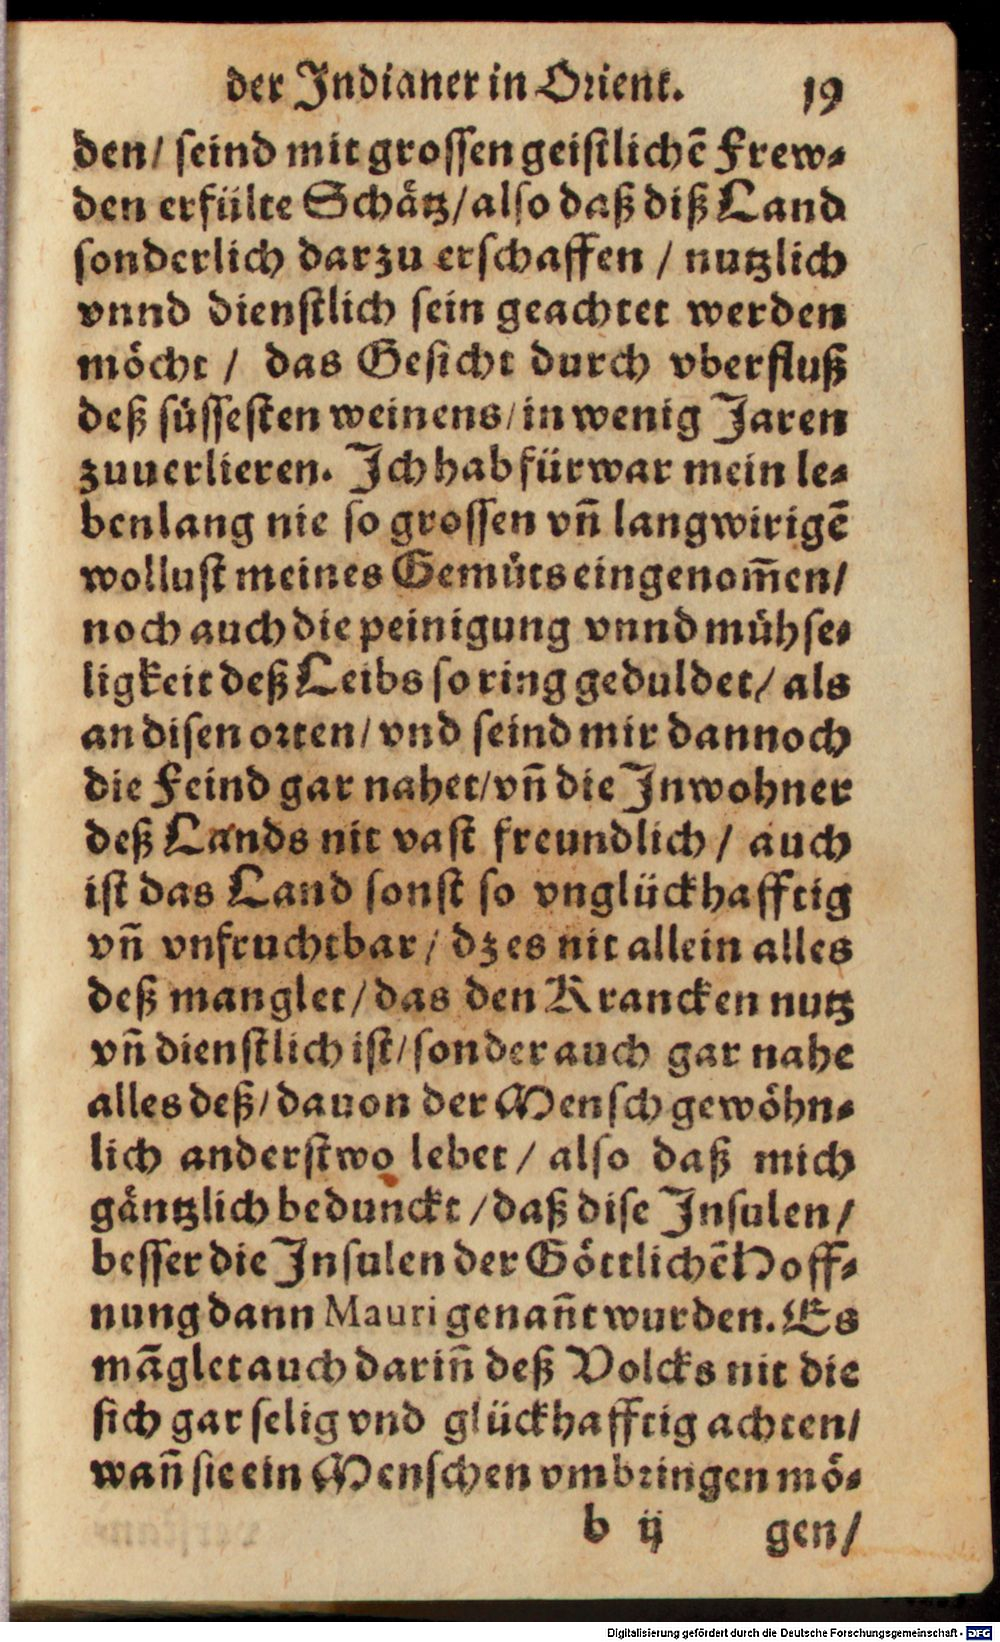 der Indianer in Orient. 19
den/ seind mit grossen geistlichẽ Frew-
den erfülte Schätz/ also daß diß Land
sonderlich darzu erschaffen / nutzlich
vnnd dienstlich sein geachtet werden
möcht / das Gesicht durch vberfluß
deß süssesten weinens/ in wenig Jaren
zuuerlieren. Ich hab fürwar mein le-
benlang nie so grossen vñ langwirigẽ
wollust meines Gemüts eingenom̃en/
noch auch die peinigung vnnd mühse-
ligkeit deß Leibs so ring geduldet/ als
an disen orten/ vnd seind mir dannoch
die Feind gar nahet/ vñ die Inwohner
deß Lands nit vast freundlich / auch
ist das Land sonst so vnglückhafftig
vñ vnfruchtbar / dz es nit allein alles
deß manglet/ das den Krancken nutz
vñ dienstlich ist/ sonder auch gar nahe
alles deß/ dauon der Mensch gewöhn-
lich anderstwo lebet / also daß mich
gäntzlich bedunckt / daß dise Insulen/
besser die Insulen der Göttlichẽ Hoff-
nung dann Mauri genañt wurden. Es
mãglet auch dariñ deß Volcks nit die
sich gar selig vnd glückhafftig achten/
wañ sie ein Menschen vmbringen mö-
b ij gen/
Digitalisierung gefördert durch die Deutsche Forschungsgemeinschaft - DFG